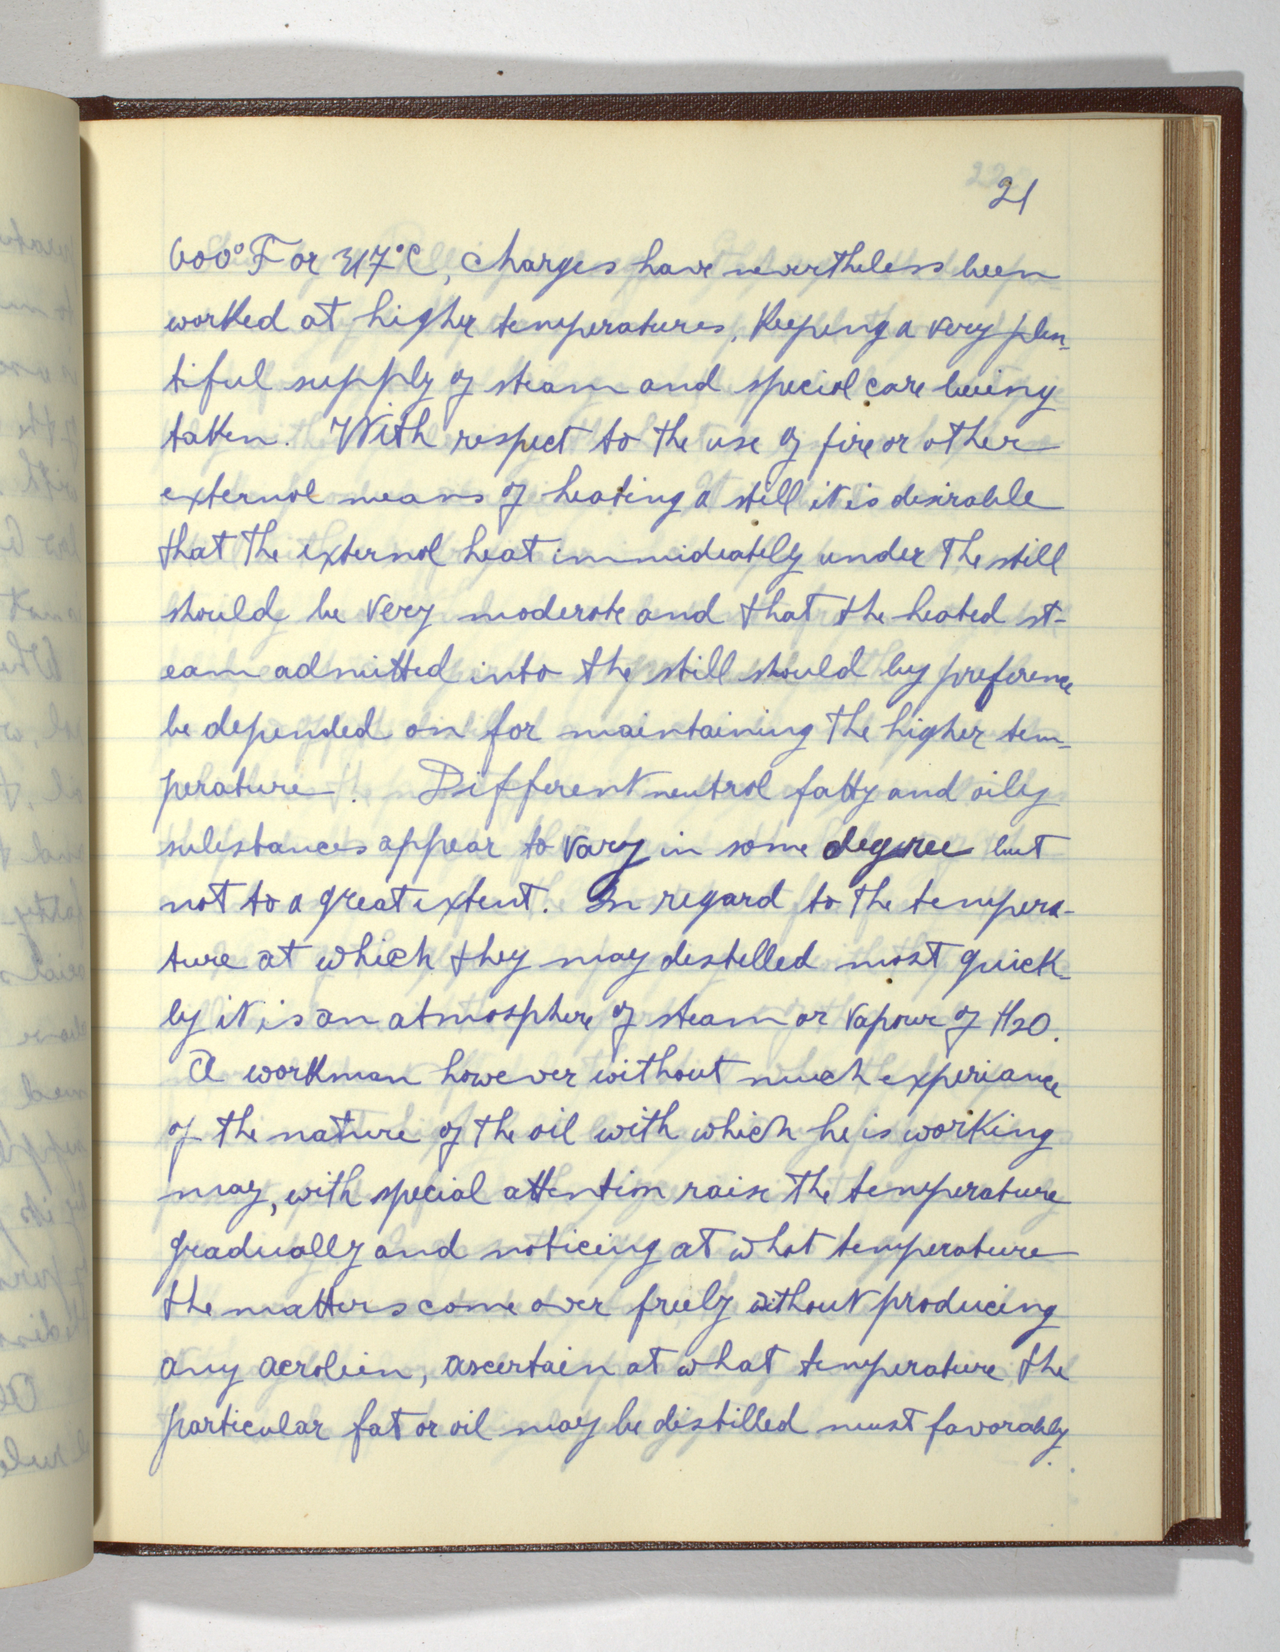 21
600°F or 317°C, charges have nevertheless been
worked at higher temperatures, Keeping a very plen-
tiful supply of steam and special care being
taken. With respect to the use of fire or other
external means of heating a still it is desirable
that the external heat immideately under the still
should be very moderate and that the heated st-
eam admitted into the still should by preference
be depended on for maintaining the higher tem-
perature. Different neutral fatty and oily
substances appear to vary in some degree but
not to a great extent. In regard to the tempera-
ture at which they may destelled most quick-
ly it is an atmosphere of steam or vapour of H2O.
A workman however without much experiance
of the nature of the oil with which he is working
may, with special attention raise the temperature
gradually and noticeing at what temperature
the matters come over freely without producing
any acrolein, ascertain at what temperature the
particular fat or oil may be distilled must favorably.